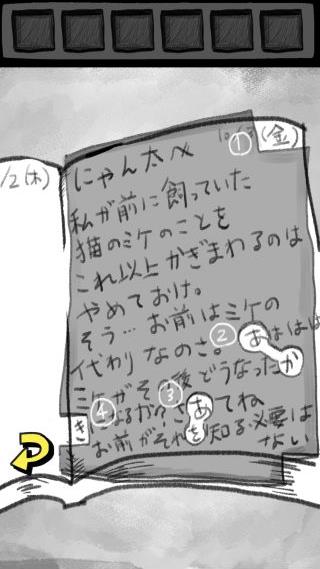 /2(木)
10/ (金)
①
にゃん太へ
私が前に飼っていた
猫のミケのことを
これ以上かぎまわるのは
やめておけ。
そう…お前はミケの
代わりなのさ。②あははは
ミケがその後どうなったか
④ ③ さあてね
き
お前がそれを知る必要は
ない